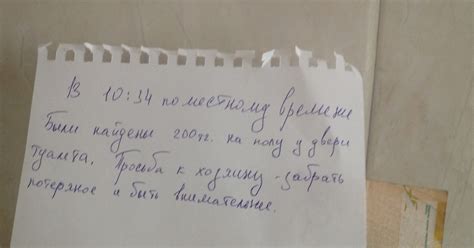 В 10:34 по местному времени
Были найдены 200тг. на полу у двери
туалта. Просьба к хозяину - забрать
потеряное и быть внимательнее.